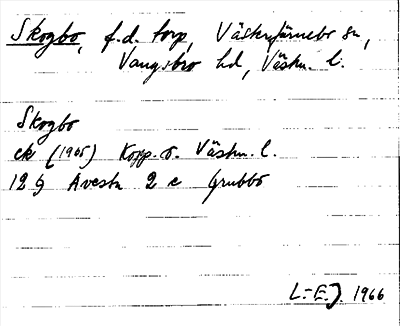 Skogbo, f.d. torp, Västerfärnebo sn,
Vangsbro hd, Västm. l.
Skogbo
ek (1965) Kopp. o. Västm. l.
12 G Avesta 2 c Grubbo
L.-E. J. 1966